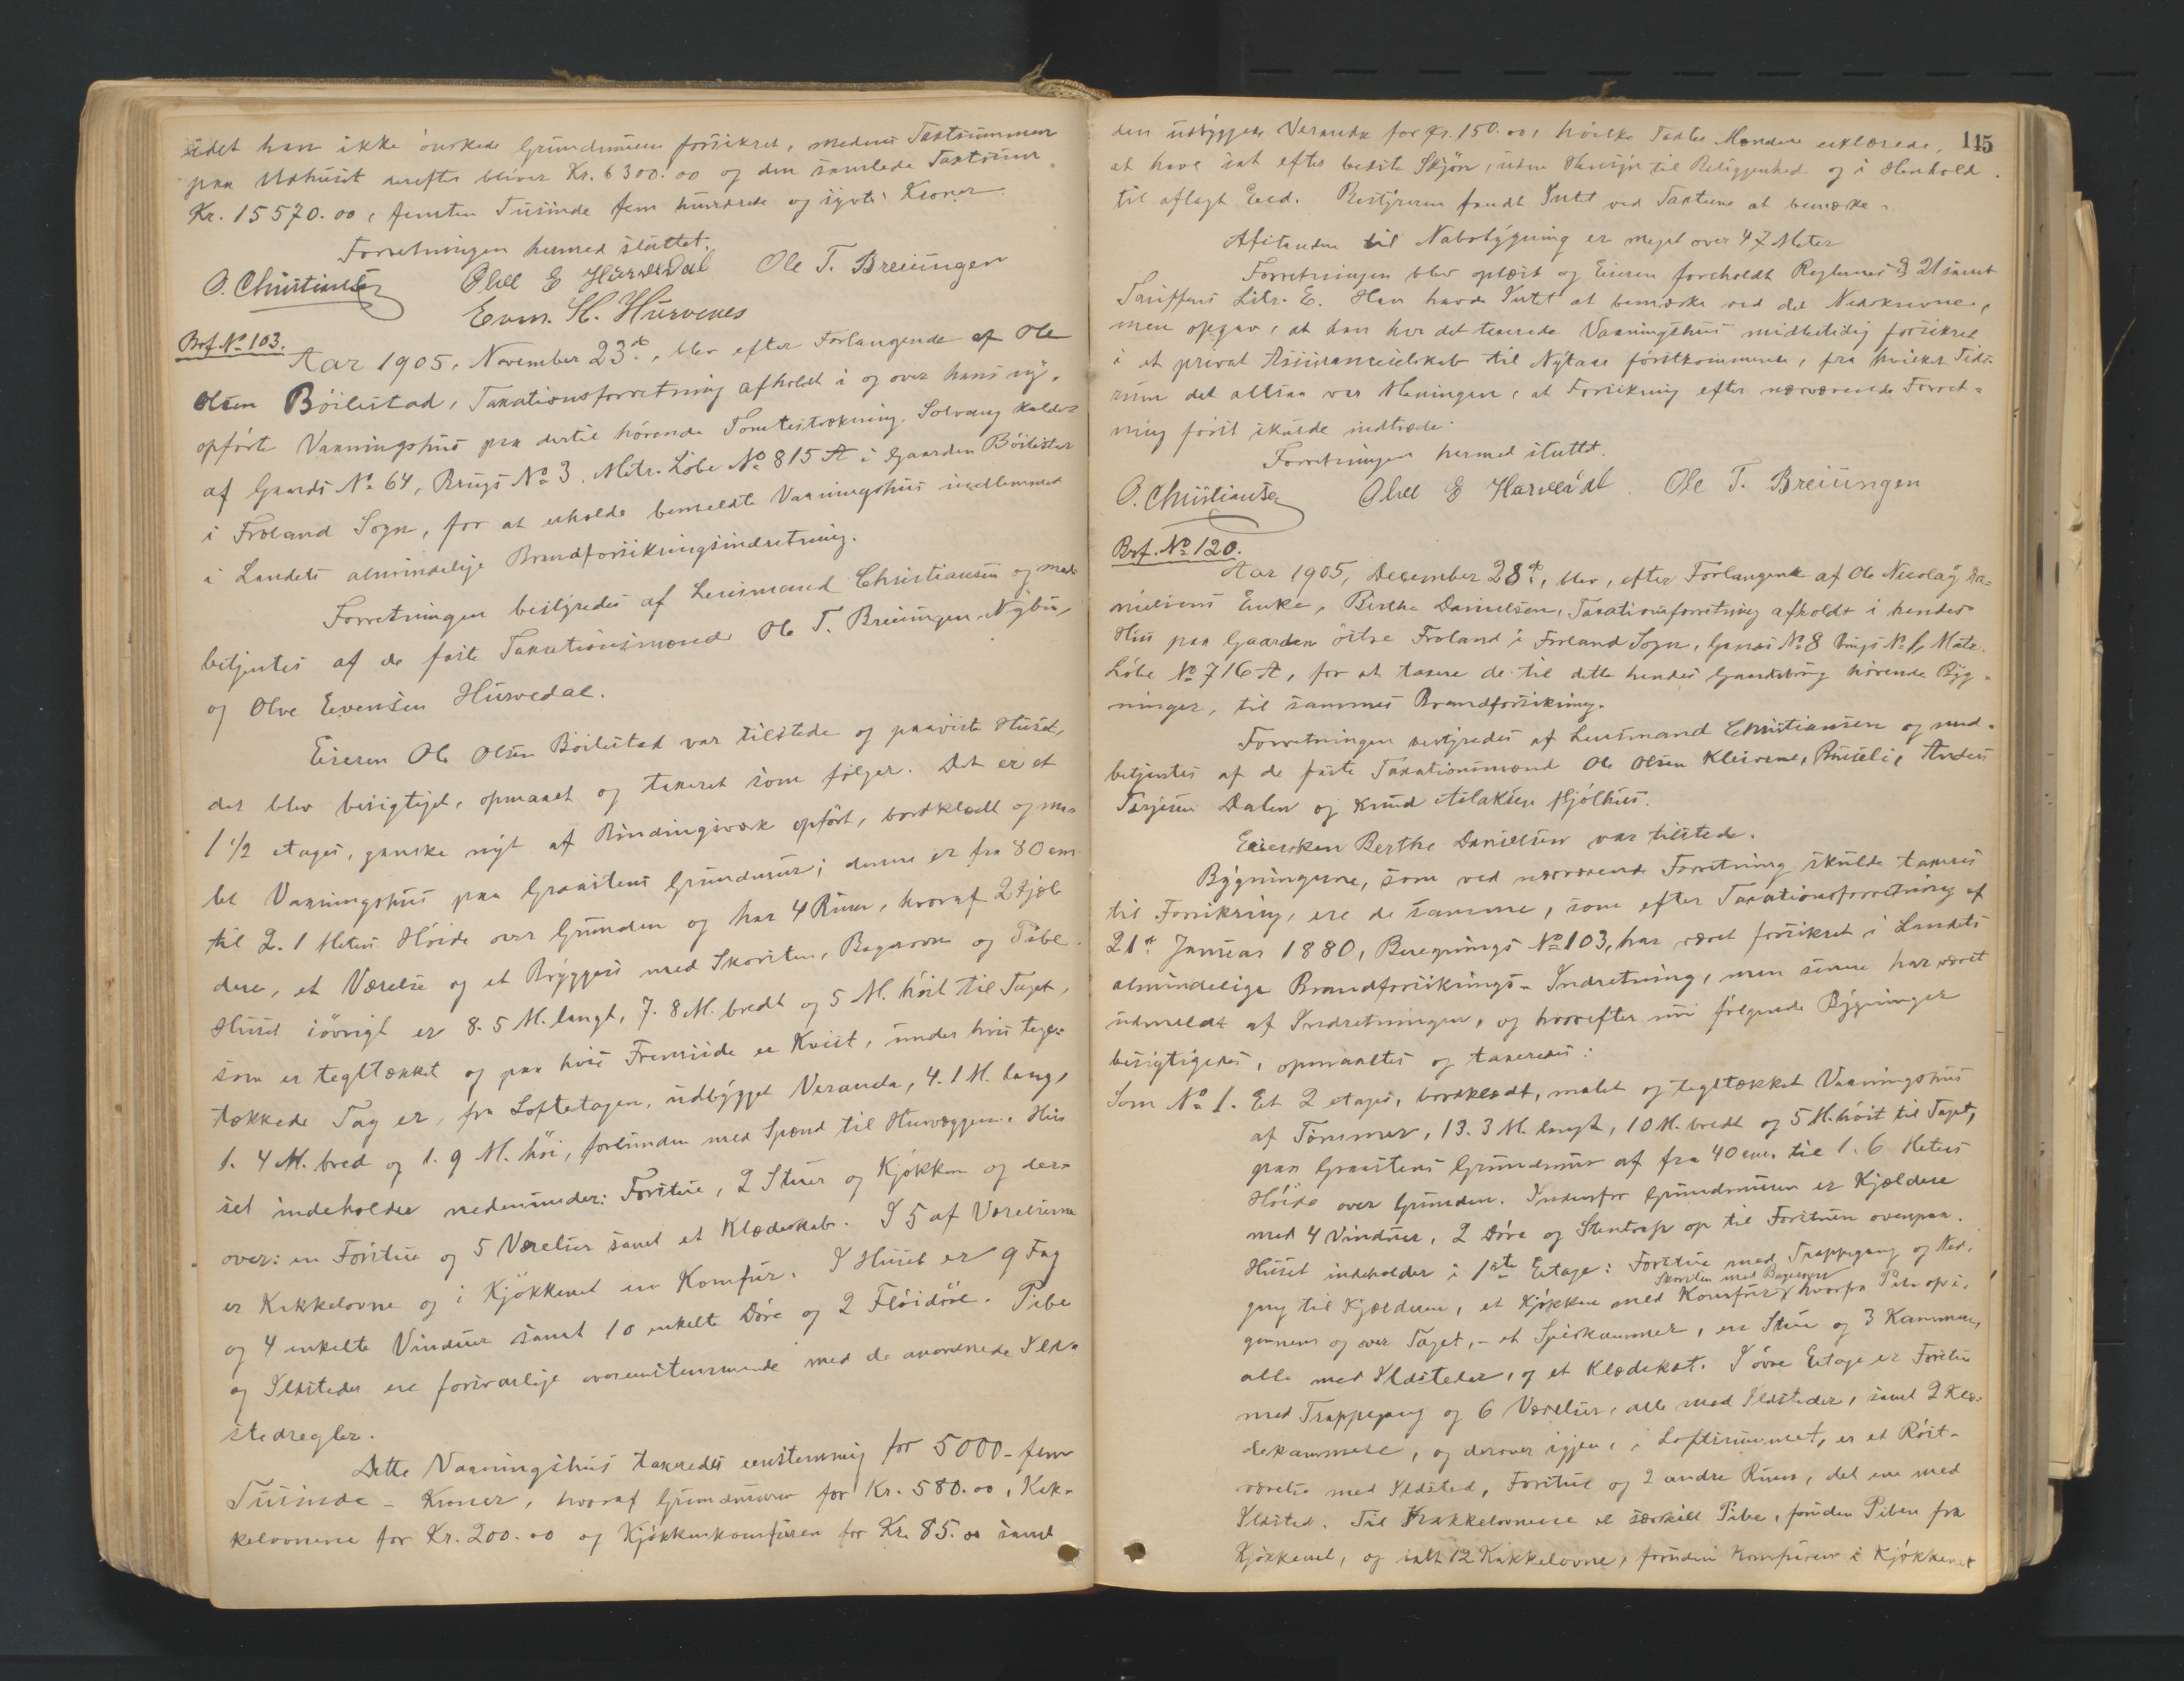 idet han ikke ønskede Grundmuren forsikret, medens Taxtsummen
paa Udhuset derefter bliver Kr. 6300.00 og den samlede Taxtsum
Kr. 15570.00, femten Tusinde fem hundrede og sytti Kroner.
Forretningen hermed sluttet.
O. Christiansen Olve E Hurvedal Ole T. Breiungen
Evm. H. Hurvenes
Brf. No 103.
Aar 1905, November 23de, blev efter Forlangende af Ole
Olsen Böilestad, Taxationsforretning afholdt i og over hans ny-
opförte Vaaningshus paa dertil hörende Tomtestrækning, Solvang kaldes
af Gaards No 64, Brugs No 3. Matr. Löbe No 815 A i Gaarden Böilestad
i Froland Sogn, for at erholde bemeldte Vaaningshus indlemmet
i Landets almindelige Brandforsikringsindretning.
Forretningen bestyredes af Lensmand Christiansen og med-
betjentes af de faste Taxationsmænd Ole T. Breiungen, Nybu,
og Olve Evensen Hurvedal.
Eieren Ole Olsen Böilestad var tilstede og paaviste Huset,
der blev besigtiget, opmaalt og taxeret som følger. Det er et
1 1/2 etages, ganske nyt af Bindingsværk opfört, bordklædt og ma-
let Vaaningshus paa Graastens Grundmur; denne er fra 80 cm.
til 2.1 Meters Höide over Grunden og har 4 Rum, hvoraf 2 Kjæl-
dere, et Værelse og et Bryggers med Skorsten, Bagerovn og Pibe.
Huset iövrigt er 8.5 M. langt, 7.8 M. bredt og 5 M. höit til Taget,
som er tegltækket og paa hvis Fremside er Kvist, under hvis tegl-
tækkede Tag er, fra Loftetagen, udbygget Veranda, 4.1 M. lang,
1.4 M. bred og 1.9 M. höi, forbunden med Spænd til Husvæggen. Hu-
set indeholder nedenunder: Forstue, 2 Stuer og Kjökken og der-
over: en Forstue og 5 Værelser samt et Klædeskab. I 5 af Værelserne
er Kakkelovne og i Kjökkenet en Komfur. I Huset er 9 Fag
og 4 enkelte Vinduer samt 10 enkelte Döre og 2 Flöidöre. Pibe
og Ildsteder ere forsvarlige overensstemmende med de anordnede Ild-
stedregler.
Dette Vaaningshus taxeredes eenstemmig for 5000 - fem
Tusinde - Kroner, hvoraf Grundmuren for Kr. 580.00, Kak-
kelovnene for Kr. 200.00 og Kjökkenkomfuren for Kr. 85.00 samt
145
den udbyggede Veranda for Kr. 150.00, hvilke Taxter Mændene erklærede,
at have sat efter bedste Skjön, uden Hensyn til Beliggenhed og i Henhold
til aflagt Eed. Bestyreren fandt Intet ved Taxterne at bemærke.
Afstanden til Nabobygning er meget over 47 Meter
Forretningen blev oplæst og Eieren foreholdt Reglernes § 21 samt
Tariffens Litr. E. Han havde Intet at bemærke ved det Nedskrevne,
men opgav, at han har det taxerede Vaaningshus midlertidig forsikret
i et privat Assuranceselskab til Nytaar förstkommende, fra hvilket Tids-
rum det altsaa var Meningen, at Forsikring efter nærværende Forret-
ning först skulde indtræde.
Forretningen hermed sluttet.
O. Christiansen Olve E Hurvedal. Ole T. Breiungen
Brf. No 120.
Aar 1905, December 28de, blev, efter Forlangende af Ole Nicolay Da-
nielsens Enke, Berthe Danielsen, Taxationsforretning afholdt i hendes
Hus paa Gaarden östre Froland i Froland Sogn, Gaards No 8 Brugs No 1, Matr.
Löbe No 716 A, for at taxere de til dette hendes Gaardsbrug hörende Byg-
ninger, til sammes Brandforsikring.
Forretningen bestyredes af Lensmand Christiansen og med-
betjentes af de faste Taxationsmænd Ole Olsen Kleivene, Buseli, Anders
Terjesen Dalen og Knud Aslaksen Mjölhus.
Eiersken Berthe Danielsen var tilstede.
Bygningerne, som ved nærværende Forretning skulde taxeres
til Forsikring, ere de samme, som efter Taxationsforretning af
21de Januar 1880, Beregnings No 103, har været forsikret i Landets
almindelige Brandforsikrings-Indretning, men senere har været
udmeldt af Indretningen, og hvorefter nu følgende Bygninger
besigtigedes, opmaaltes og taxeredes:
Som No 1. Et 2 etages, bordklædt, malet og tegltækket Vaaningshus
af Tömmer, 13.3 M. langt, 10 M. bredt og 5 M. höit til Taget,
paa Graastens Grundmur af fra 40 cm. til 1.6 Meters
Höide over Grunden. Indenfor Grundmuren er Kjældere
med 4 Vinduer, 2 Döre og Stentrap op til Forstuen ovenpaa.
Huset indeholder i 1ste Etage: Forstue med Trappegang og Ned-
gang til Kjælderen, et Kjökken med Komfur, Skorsten med Bagerovn hvorfra Pibe op i-
gjennem og over Taget, - et Spiskammer, en Stue og 3 Kammere,
alle med Ildsteder, og et Klædekot. I övre Etage er Forstue
med Trappegang og 6 Værelser, alle med Ildsteder, samt 2 Klæ-
dekammere, og derover igjen, i Loftsrummet, er et Röst-
værelse med Ildsted, Forstue og 2 andre Rum, det ene med
Ildsted. Til Kakkelovnene er særskilt Pibe, foruden Piben fra
Kjökkenet, og ialt 12 Kakkelovne, foruden Komfuren i Kjökkenet